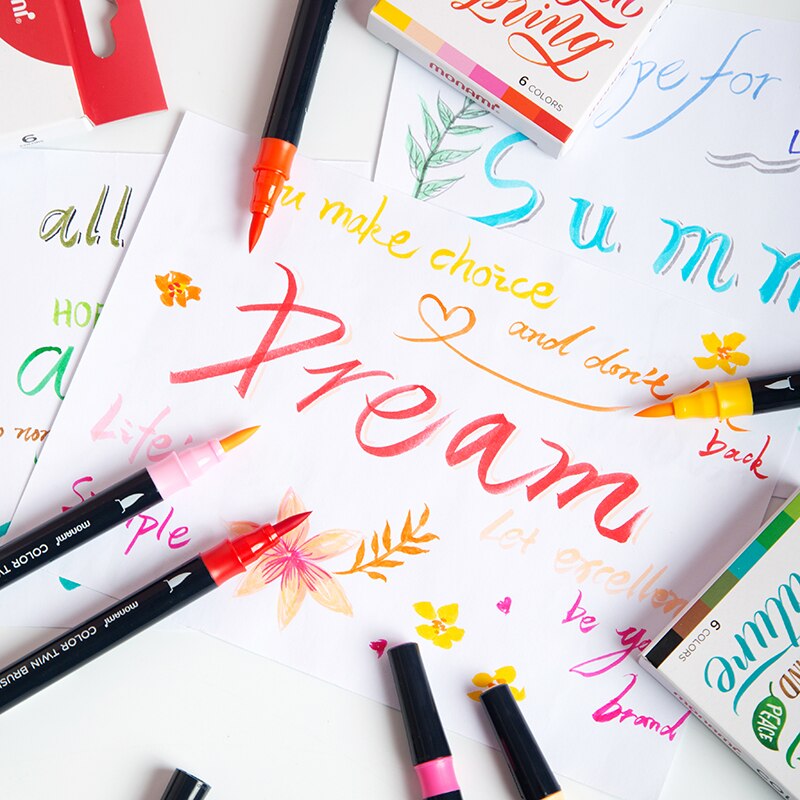 monami
6
Spring
monami
6 COLORS
pe for
Summ
all
HOP
a
u make choice
and don't
back
Dream
Life
ple
Let excellen
be yo
brand
monami COLOR TW
monami COLOR TWIN BRUSH
6 COLORS
ature
AND
PEACE
monami